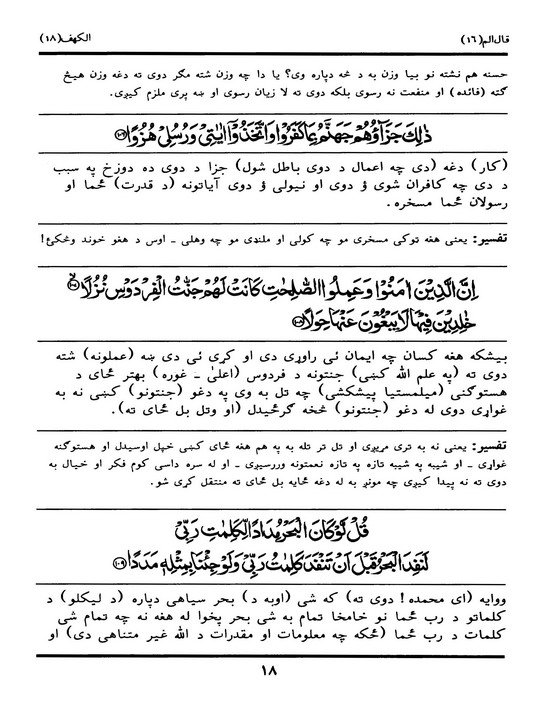 قال الم(١٦)
الكهف(١٨)
حسنه هم نشته نو بيا وزن به د څه دپاره وي؟ يا دا چه وزن شته مګر دوي ته دغه وزن هيڅ
ګټه (فائده) او منفعت نه رسوي بلكه دوي ته لا زيان رسوي او ښه پرې ملزم كيږي.
ذٰلِكَ جَزَآؤُهُمْ جَهَنَّمُ بِمَا كَفَرُوْا وَاتَّخَذُوْٓا اٰيٰتِيْ وَرُسُلِيْ هُزُوًا ﴿١٠٦﴾
(كار) دغه (دي چه اعمال د دوي باطل شول) جزا د دوي ده دوزخ په سبب
د دې چه كافران شوي ؤ دوي او نيولي ؤ دوي آياتونه (د قدرت) ځما او
رسولان ځما مسخره.
تفسير: يعني هغه ټوكې مسخرې مو چه كولې او ملنډې مو چه وهلې ـ اوس د هغو خوند وڅكئ!
اِنَّ الَّذِيْنَ اٰمَنُوْا وَعَمِلُوا الصّٰلِحٰتِ كَانَتْ لَهُمْ جَنّٰتُ الْفِرْدَوْسِ نُزُلًا ﴿١٠٧﴾
خٰلِدِيْنَ فِيْهَا لَا يَبْغُوْنَ عَنْهَا حِوَلًا ﴿١٠٨﴾
بيشكه هغه كسان چه ايمان ئي راوړى دى او كړي ئي دي ښه (عملونه) شته
دوي ته (په علم الله كښې) جنتونه د فردوس (اعلىٰ ـ غوره) بهتر ځاى د
هستوګنې (ميلمستيا پيشكشي) چه تل به وي په دغو (جنتونو) كښې نه به
غواړي دوي له دغو (جنتونو) څخه ګرځيدل (او وتل بل ځاى ته).
تفسير: يعني نه به ترې مړيږي او تل تر تله به په هم هغه ځاى كښې خپل اوسيدل او هستوګنه
غواړي ـ او شيبه په شيبه تازه په تازه نعمتونه وررسيږي ـ او له سره داسې كوم فكر او خيال به
دوي ته نه پيدا كيږي چه مونږ به له دغه ځايه بل ځاى ته منتقل كړى شو.
قُلْ لَّوْ كَانَ الْبَحْرُ مِدَادًا لِّكَلِمٰتِ رَبِّيْ
لَنَفِدَ الْبَحْرُ قَبْلَ اَنْ تَنْفَدَ كَلِمٰتُ رَبِّيْ وَلَوْ جِئْنَا بِمِثْلِهٖ مَدَدًا ﴿١٠٩﴾
ووايه (اى محمده! دوي ته) كه شي (اوبه د) بحر سياهي دپاره (د ليكلو) د
كلماتو د رب ځما نو خامخا تمام به شي بحر پخوا له هغه نه چه تمام شي
كلمات د رب ځما (ځكه چه معلومات او مقدرات د الله غير متناهي دي) او
١٨